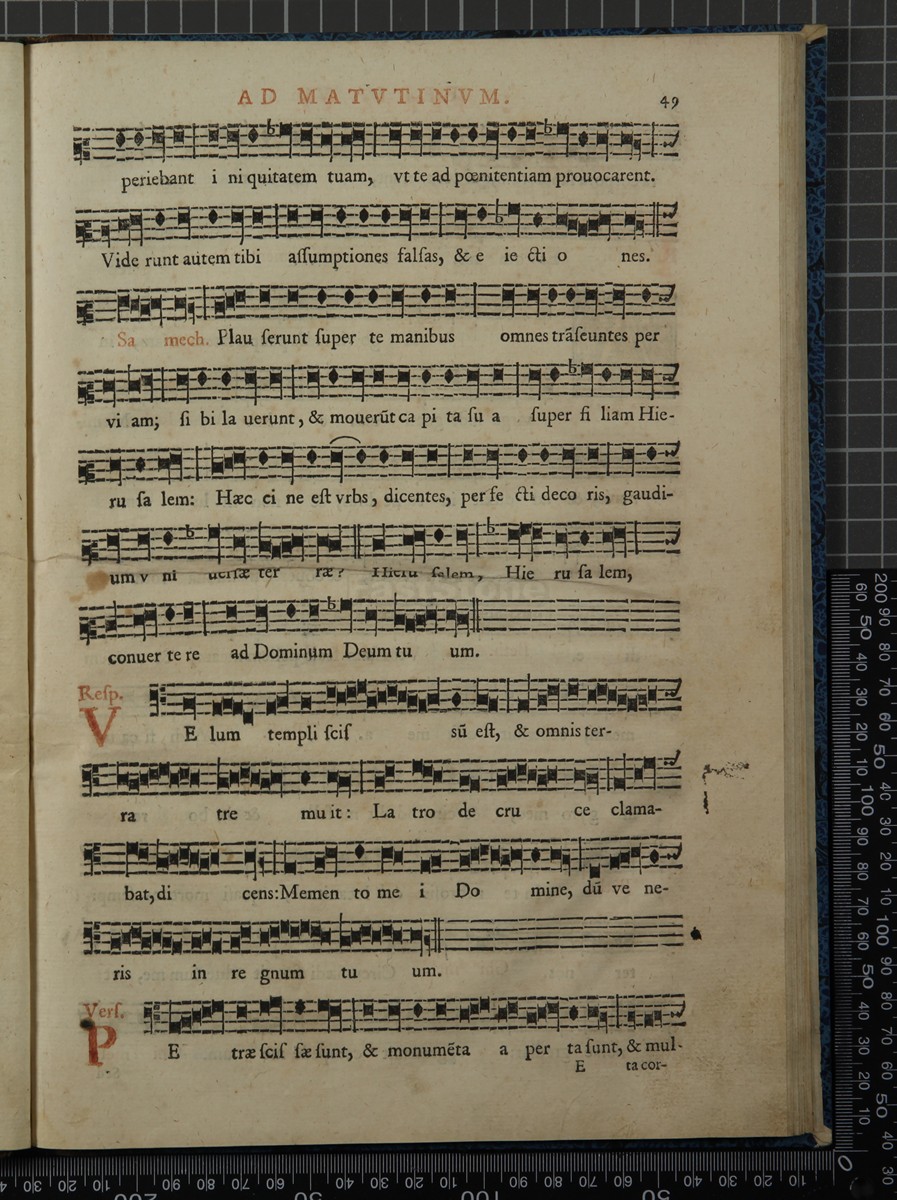 AD MATVTINVM.
49
periebant i ni quitatem tuam, vt te ad pœnitentiam prouocarent.
Vide runt autem tibi aſſumptiones falſas, & e ie cti o nes.
Sa mech. Plau ſerunt ſuper te manibus omnes trãſeuntes per
vi am; ſi bi la uerunt, & mouerũt ca pi ta ſu a ſuper fi liam Hie-
ru ſa lem: Hæc ci ne eſt vrbs, dicentes, per fe cti deco ris, gaudi-
um v ni uerſæ ter ræ? Hieru ſalem, Hie ru ſa lem,
conuer te re ad Dominum Deum tu um.
Reſp.
VE lum templi ſciſ sũ eſt, & omnis ter-
ra tre mu it: La tro de cru ce clama-
bat, di cens: Memen to me i Do mine, dũ ve ne-
ris in re gnum tu um.
Verſ.
PE træ ſciſ ſæ ſunt, & monumẽta a per ta ſunt, & mul-
E ta cor-